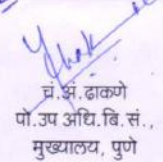 चं.अं.ढाकणे
पो.उप अधि.बि.सं.,
मुख्यालय, पुणे